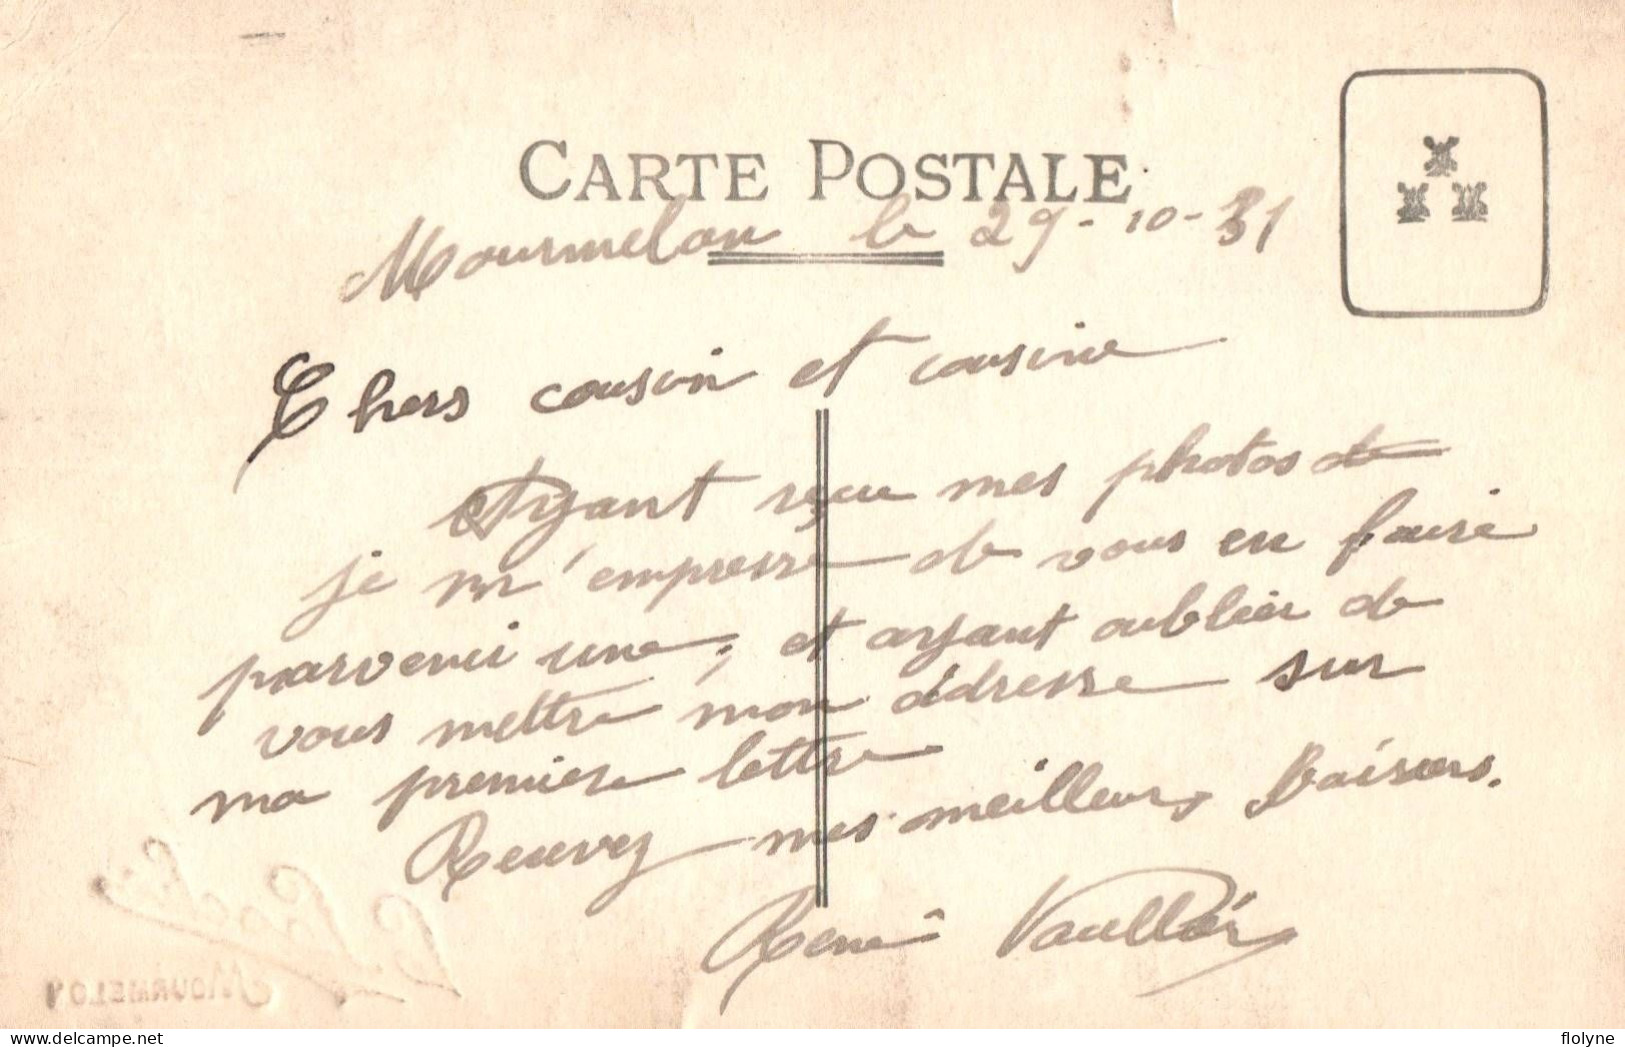 CARTE POSTALE
Mourmelon le 29-10-31
Chers cousin et cousine
Ayant reçu mes photos
je m'empresse de vous en faire
parvenir une, et ayant oublier de
vous mettre mon adresse sur
ma premiere lettre
Recevez mes meilleurs Baisers.
René
MOURMELON
delcampe.net
flolyne